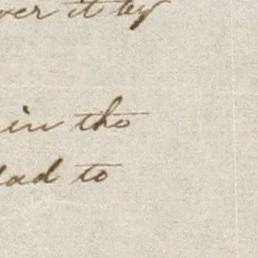 over it by
in the
lad to